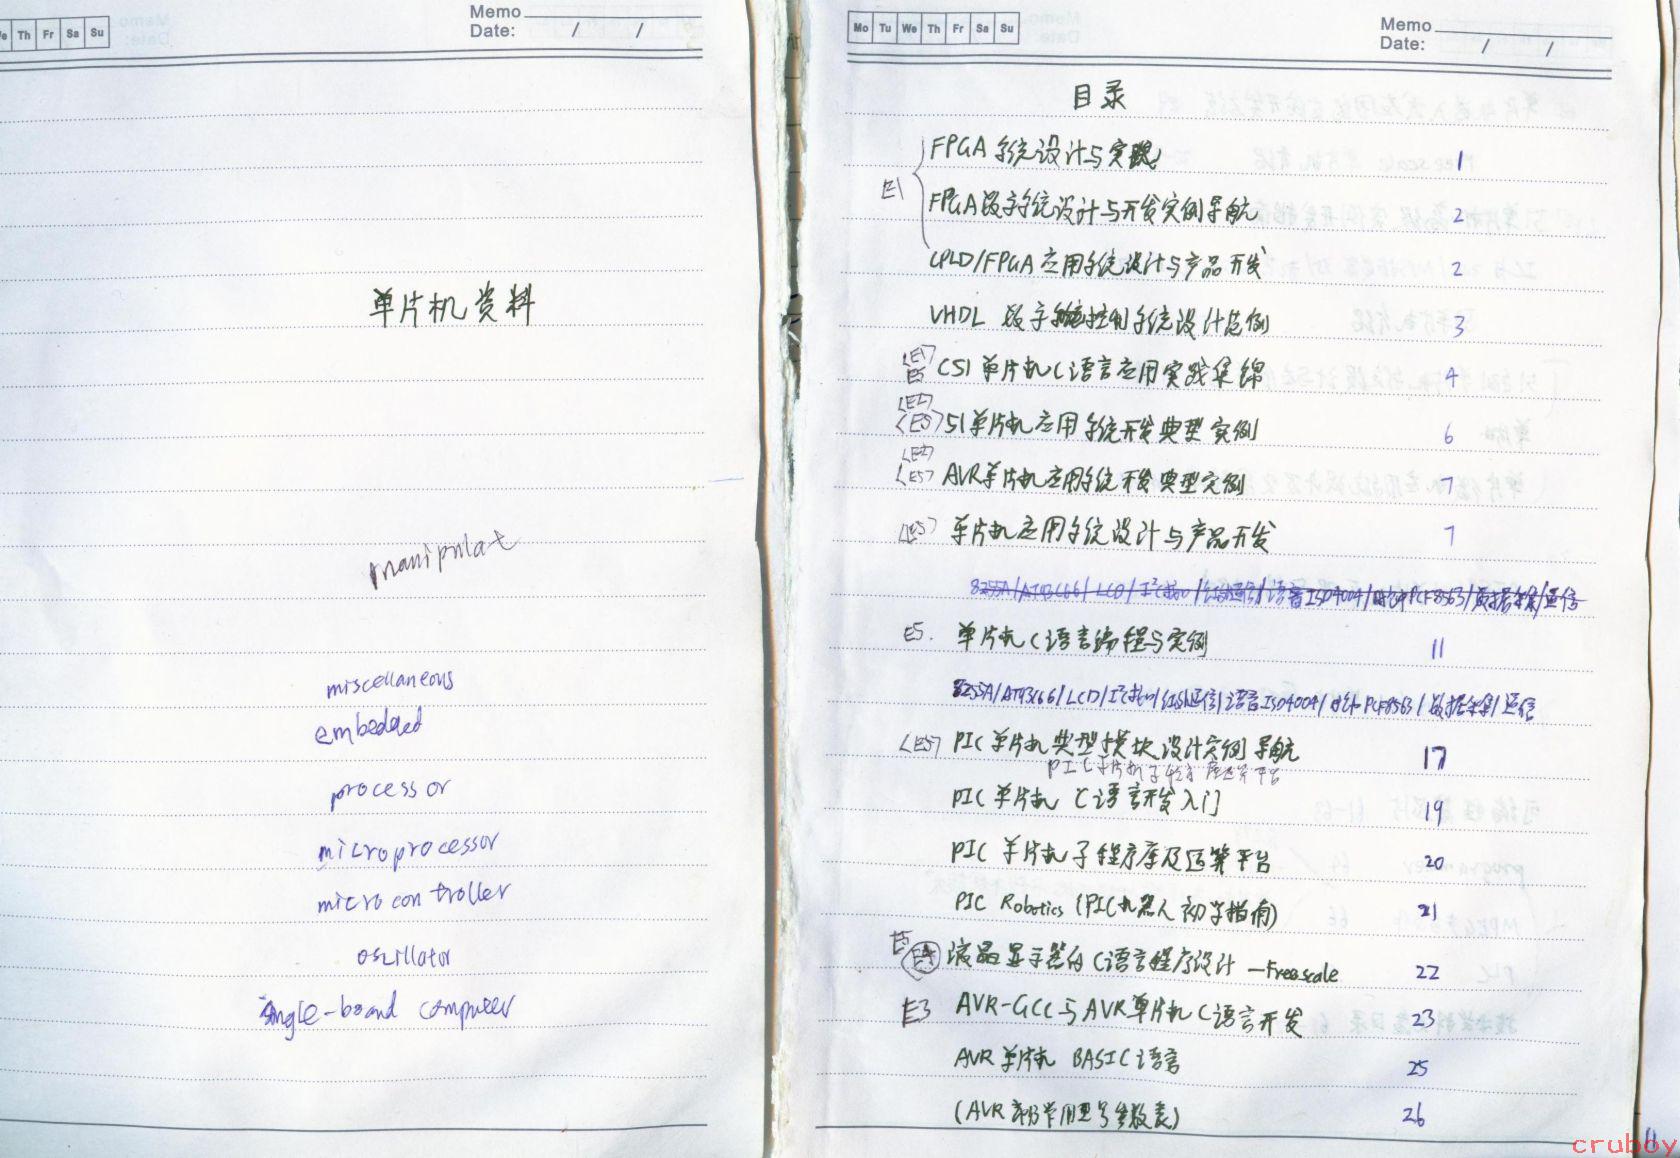 Th Fr Sa Su
Memo
Date: / /
单片机资料
manipulat
miscellaneous
embedded
processor
microprocessor
microcontroller
oscillator
single-board computer
Mo Tu We Th Fr Sa Su
Memo
Date: / /
目录
E1
FPGA 系统设计与实践 1
FPGA数字系统设计与开发实例导航 2
CPLD/FPGA 应用系统设计与产品开发 2
VHDL 数字控制系统设计范例 3
<E1> E5 C51 单片机C语言应用实践集锦 4
<E2> <E5> 51单片机应用系统开发典型实例 6
<E2> <E5> AVR单片机应用系统开发典型实例 7
<E5> 单片机应用系统设计与产品开发 7
8255A/AT93C66/LCD/I²C接口/红外通信/语音ISD4004/时钟PCF8563/数据采集/通信
E5. 单片机C语言编程与实例 11
8255A/AT93C66/LCD/I²C接口/红外通信/语音ISD4004/时钟PCF8563/数据采集/通信
<E5> PIC单片机典型模块设计实例导航 17
PIC单片机子程序库运算平台
PIC 单片机 C语言开发入门 19
PIC 单片机子程序库及运算平台 20
PIC Robotics (PIC机器人初学指南) 21
E5 E4 液晶显示器的C语言程序设计 —Freescale 22
E3 AVR-GCC与AVR单片机C语言开发 23
AVR 单片机 BASIC语言 25
(AVR 部分常用型号参数表) 26
cruboy